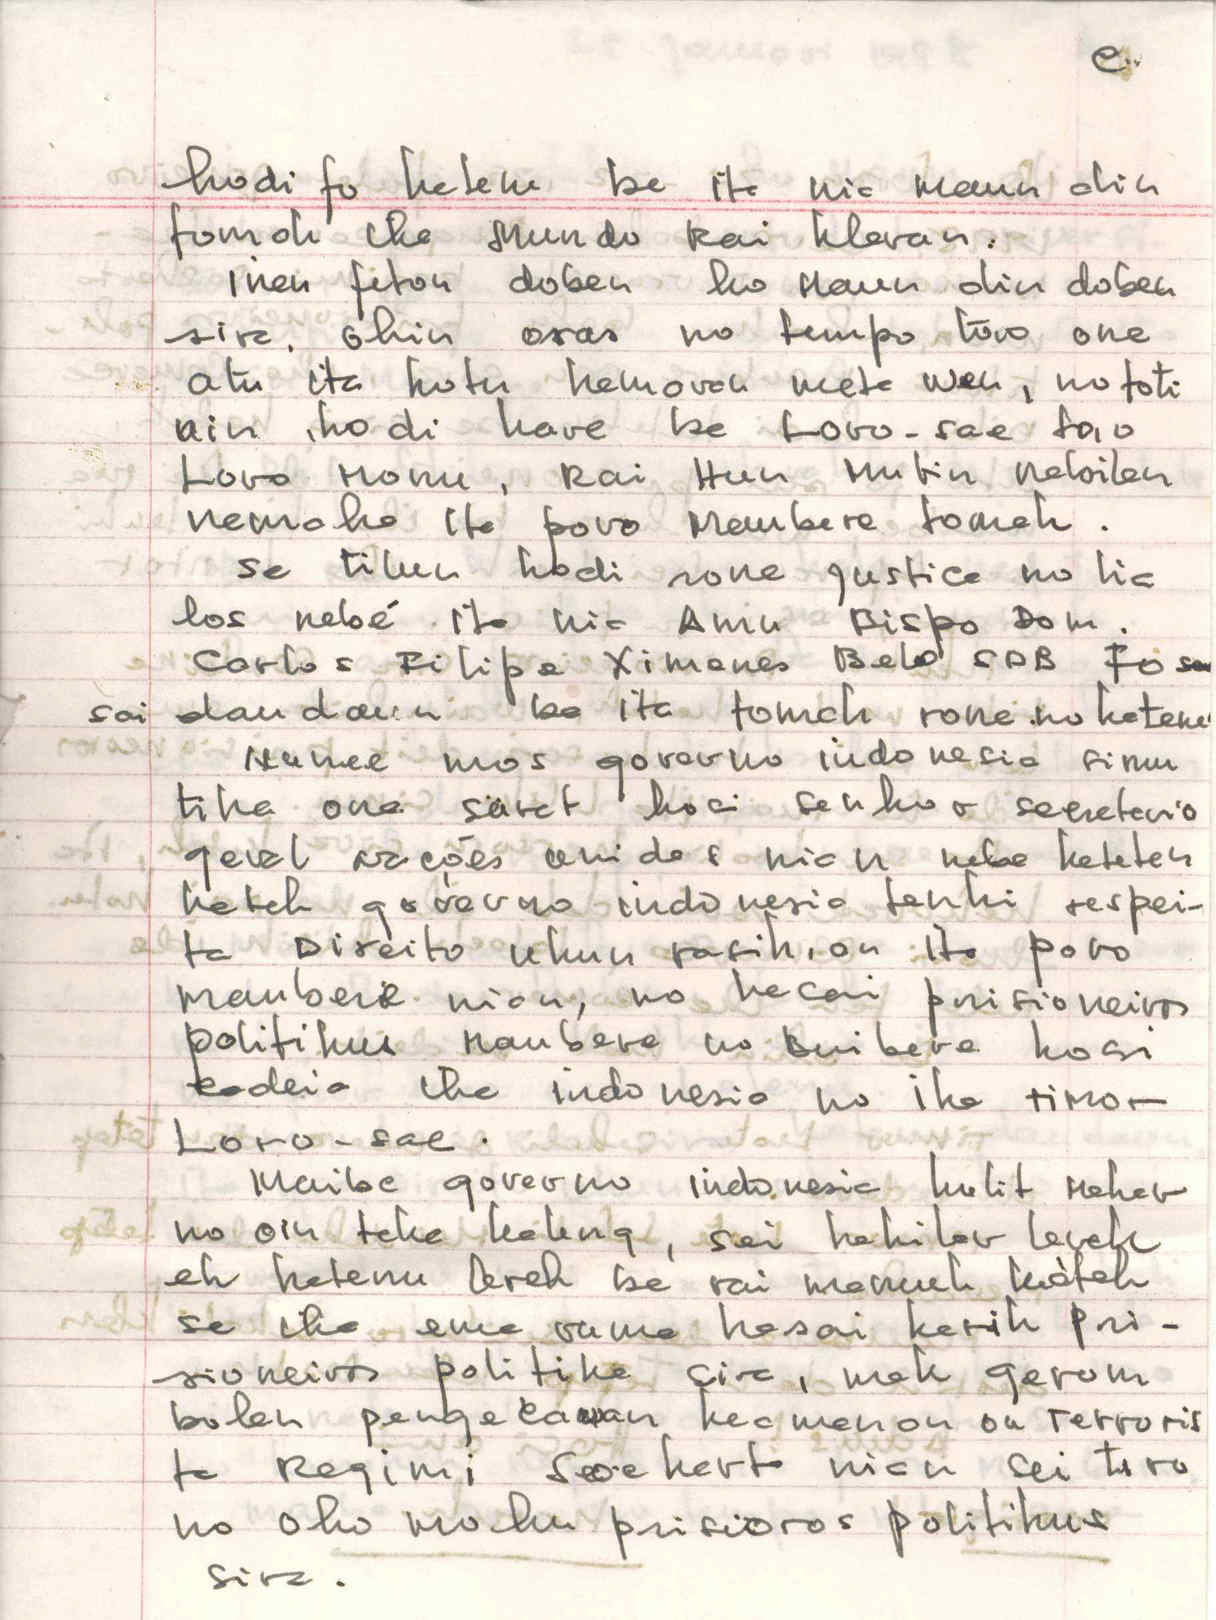 e..
hodi fo hatene ba ita nia maun alin
tomak iha Mundo Rai klaran.
Inan feton doben ho Maun alin doben
sira, ohin oras no tempo too ona
atu ita hotu hamoron mata wen, no foti
ain, hodi hare ba Loro-sae too
Loro Monu, Rai Hun Mutin nebilan
nemaka ita povo Maubere tomak.
Se tilun hodi rona justica no lia
los nebé ita nia Amu Bispo Dom.
Carlos Filipe Ximenes Belo SDB Fo sa
sai daudaun ba ita tomak rona no hatene
Nunee mos governo indonesia simu
tiha ona surat hosi senhor secretario
geral nações unidas nian nebe hateten
katak governo indonesia tenki respei-
ta Direito ukun rasik, an ita povo
maubere nian, no hasai prisioneiros
politikus Maubere no Buibere hosi
cadeia iha indonesia no iha Timor
Loro-sae.
Maibe governo indonesia kulit Mahar
no oin teka kalung, sei hakilar larek
ek hatenu larek ba rai manuk katak
se iha ema ruma hasai karik pri-
sioneiros politika sira, mak gerom
bolan pengacauan keamanan ou Terroris
ta Regimi Soeharto nian sei tiro
no oho mohu prisioros politikus
sira.